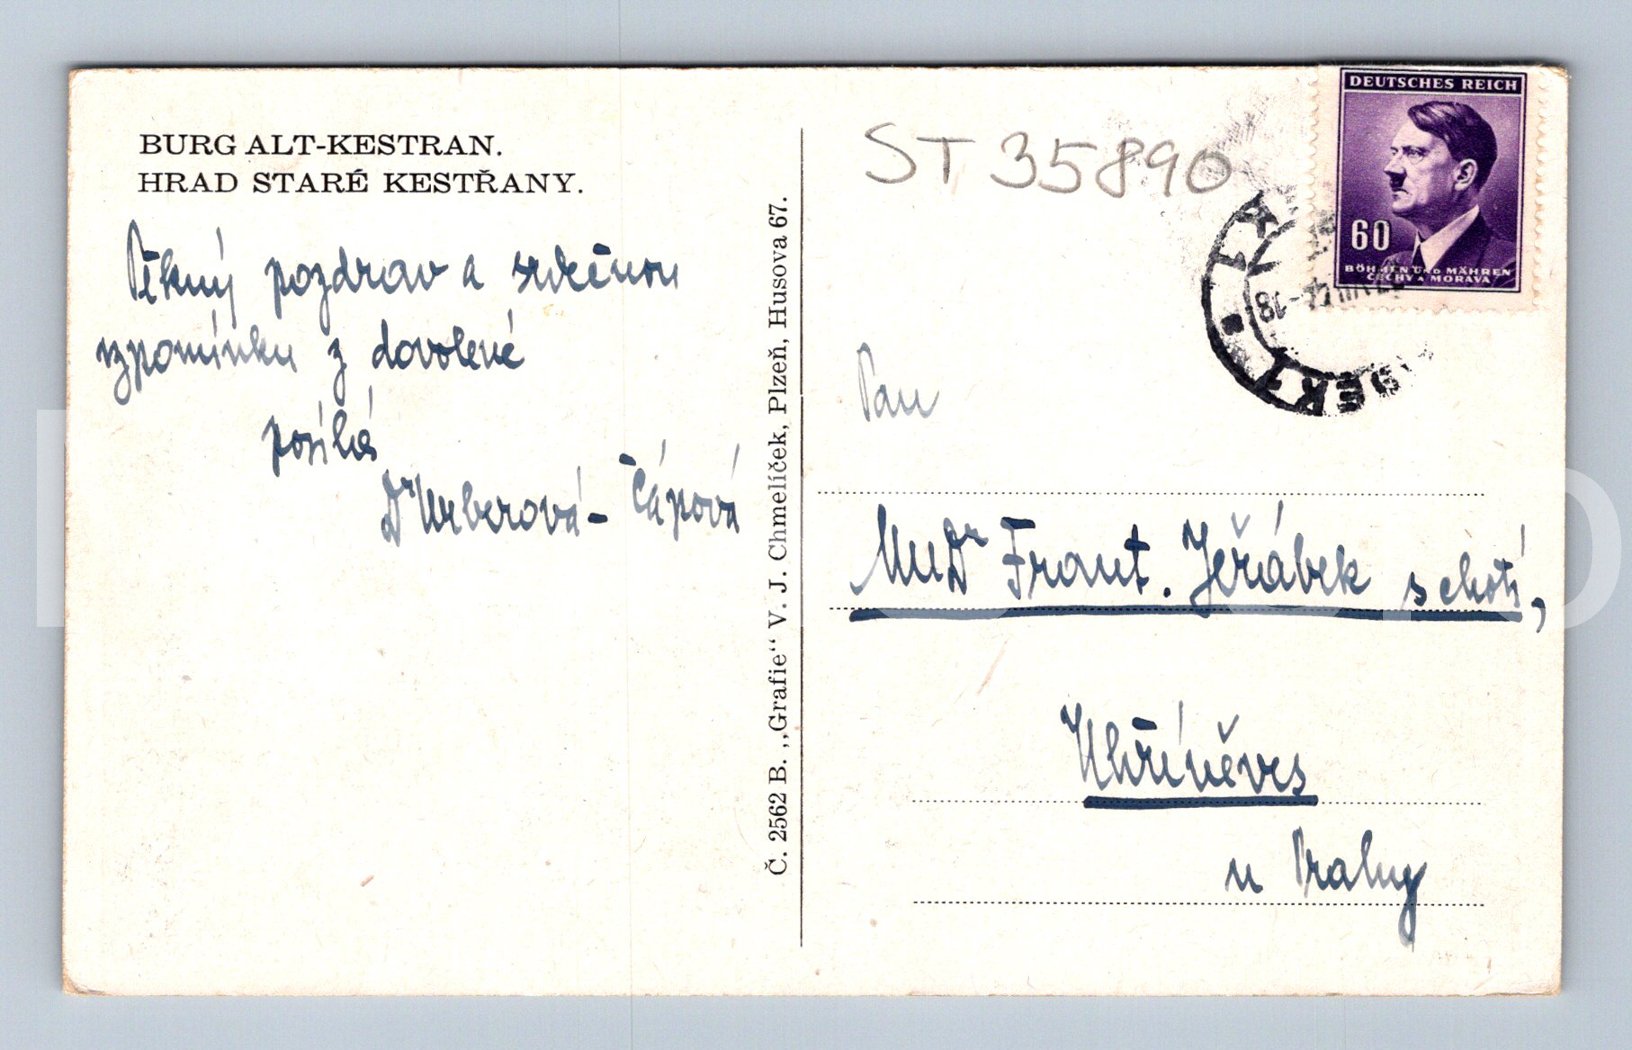 BURG ALT-KESTRAN.
HRAD STARÉ KESTŘANY.
Pěkný pozdrav a srdečnou
vzpomínku z dovolené
posílá
Dr Weberová - Čápová
Č. 2562 B. „Grafie“ V. J. Chmelíček, Plzeň, Husova 67.
ST 35890
DEUTSCHES REICH
60
BÖHMEN UND MÄHREN
ČECHY A MORAVA
Pan
MuDr Frant. Jeřábek s chotí,
Uhříněves
u Prahy